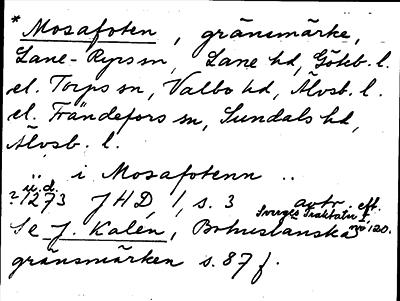 * Mosafoten, gränsmärke,
Lane-Ryrs sn, Lane hd, Göteb. l.
el. Torps sn, Valbo hd, Älvsb. l.
el. Frändefors sn, Sundals hd,
Älvsb. l.
.. i Mosafotenn ..
u. d.
? 1273 JHD 1, s. 3 avtr. eft.
Sveriges Traktater I,
no 120.
Se J. Kalén, Bohuslänska
gränsmärken s. 87 f.